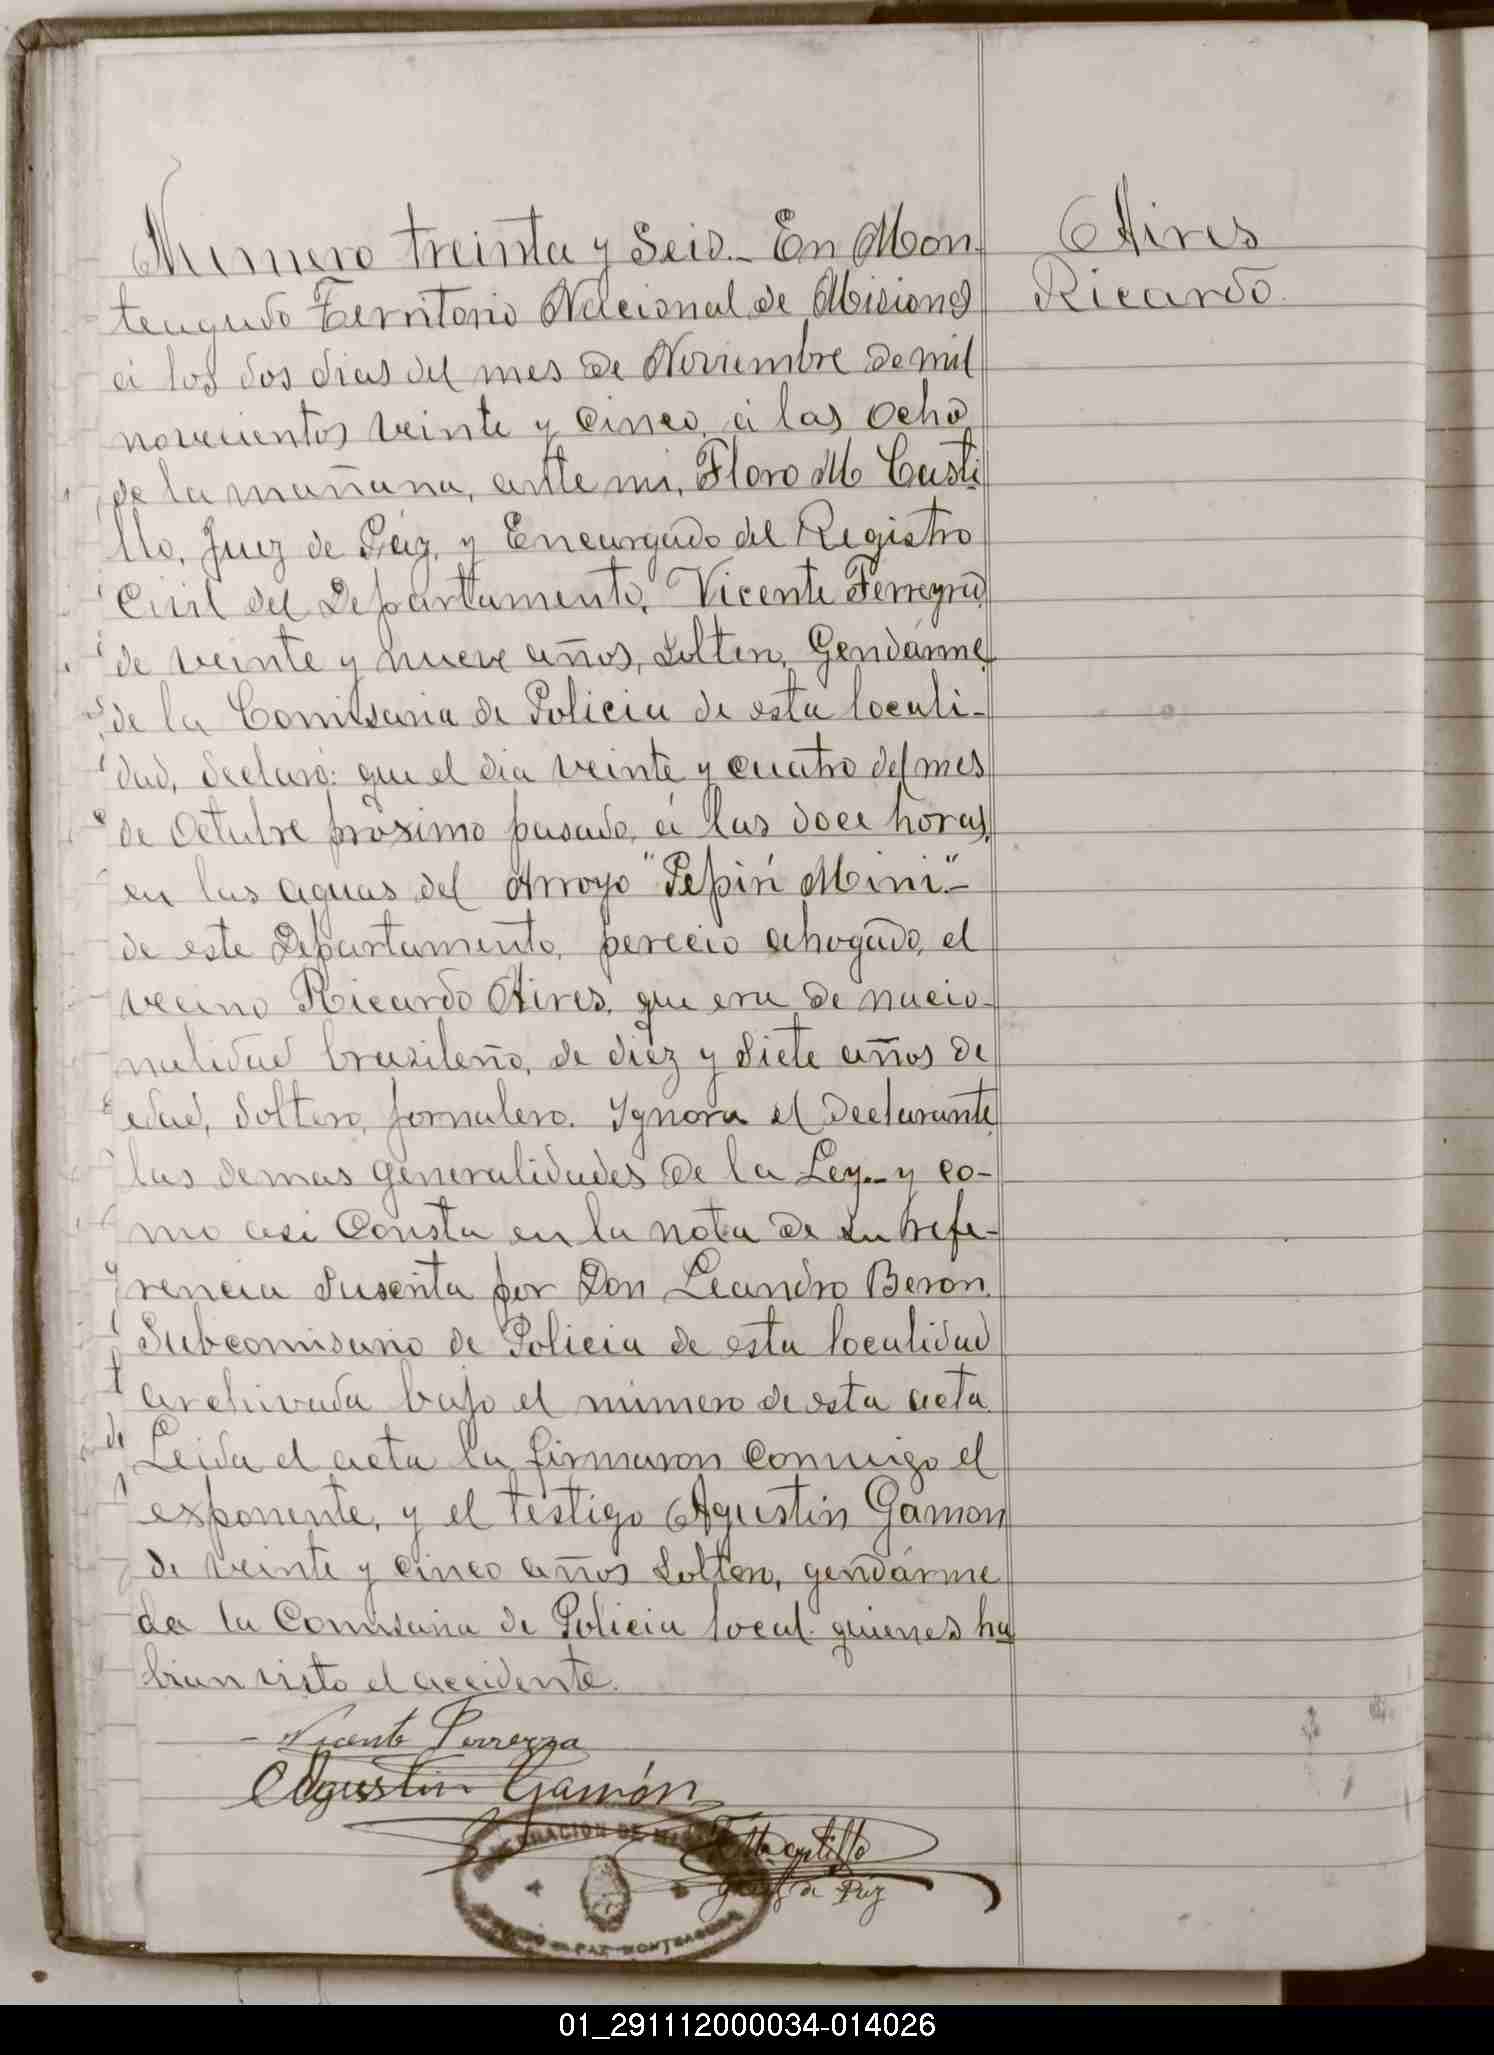 Numero treinta y Seis._ En Mon-
teagudo Territorio Nacional de Misiones
á los dos dias del mes de Noviembre de mil
novecientos veinte y cinco, á las ocho
de la mañana, ante mi, Floro M Casti
llo, Juez de Páz, y Encargado del Registro
Civil del Departamento, Vicente Ferreyra
de veinte y nueve años, Soltero, Gendárme
de la Comisaria de Policia de esta locali-
dad, declaró: que el dia veinte y cuatro del mes
de Octubre próximo pasado, á las doce horas,
en las aguas del Arroyo "Pepiri Mini"-
de este Departamento, perecio ahogado, el
vecino Ricardo Aires, que era de nacio-
nalidad brazileño, de diez y siete años de
edad, Soltero, jornalero. Ygnora el Declarante
las demas generalidades de la Ley._ y co-
mo asi Consta en la nota de su refe-
rencia Suscrita por Don Leandro Beron,
Subcomisario de Policia de esta localidad
archivada bajo el número de esta acta.
Leida el acta la firmaron conmigo el
exponente, y el testigo Agustin Gamon
de veinte y cinco años Soltero, gendárme
de la Comisaria de Policia local. quienes ha
bian visto el accidente.
Aires
Ricardo.
Vicente Ferreyra
Agustin Gamón
Castillo
Juez de Páz
DE
PAZ MONTEAGUDO
01_291112000034-014026